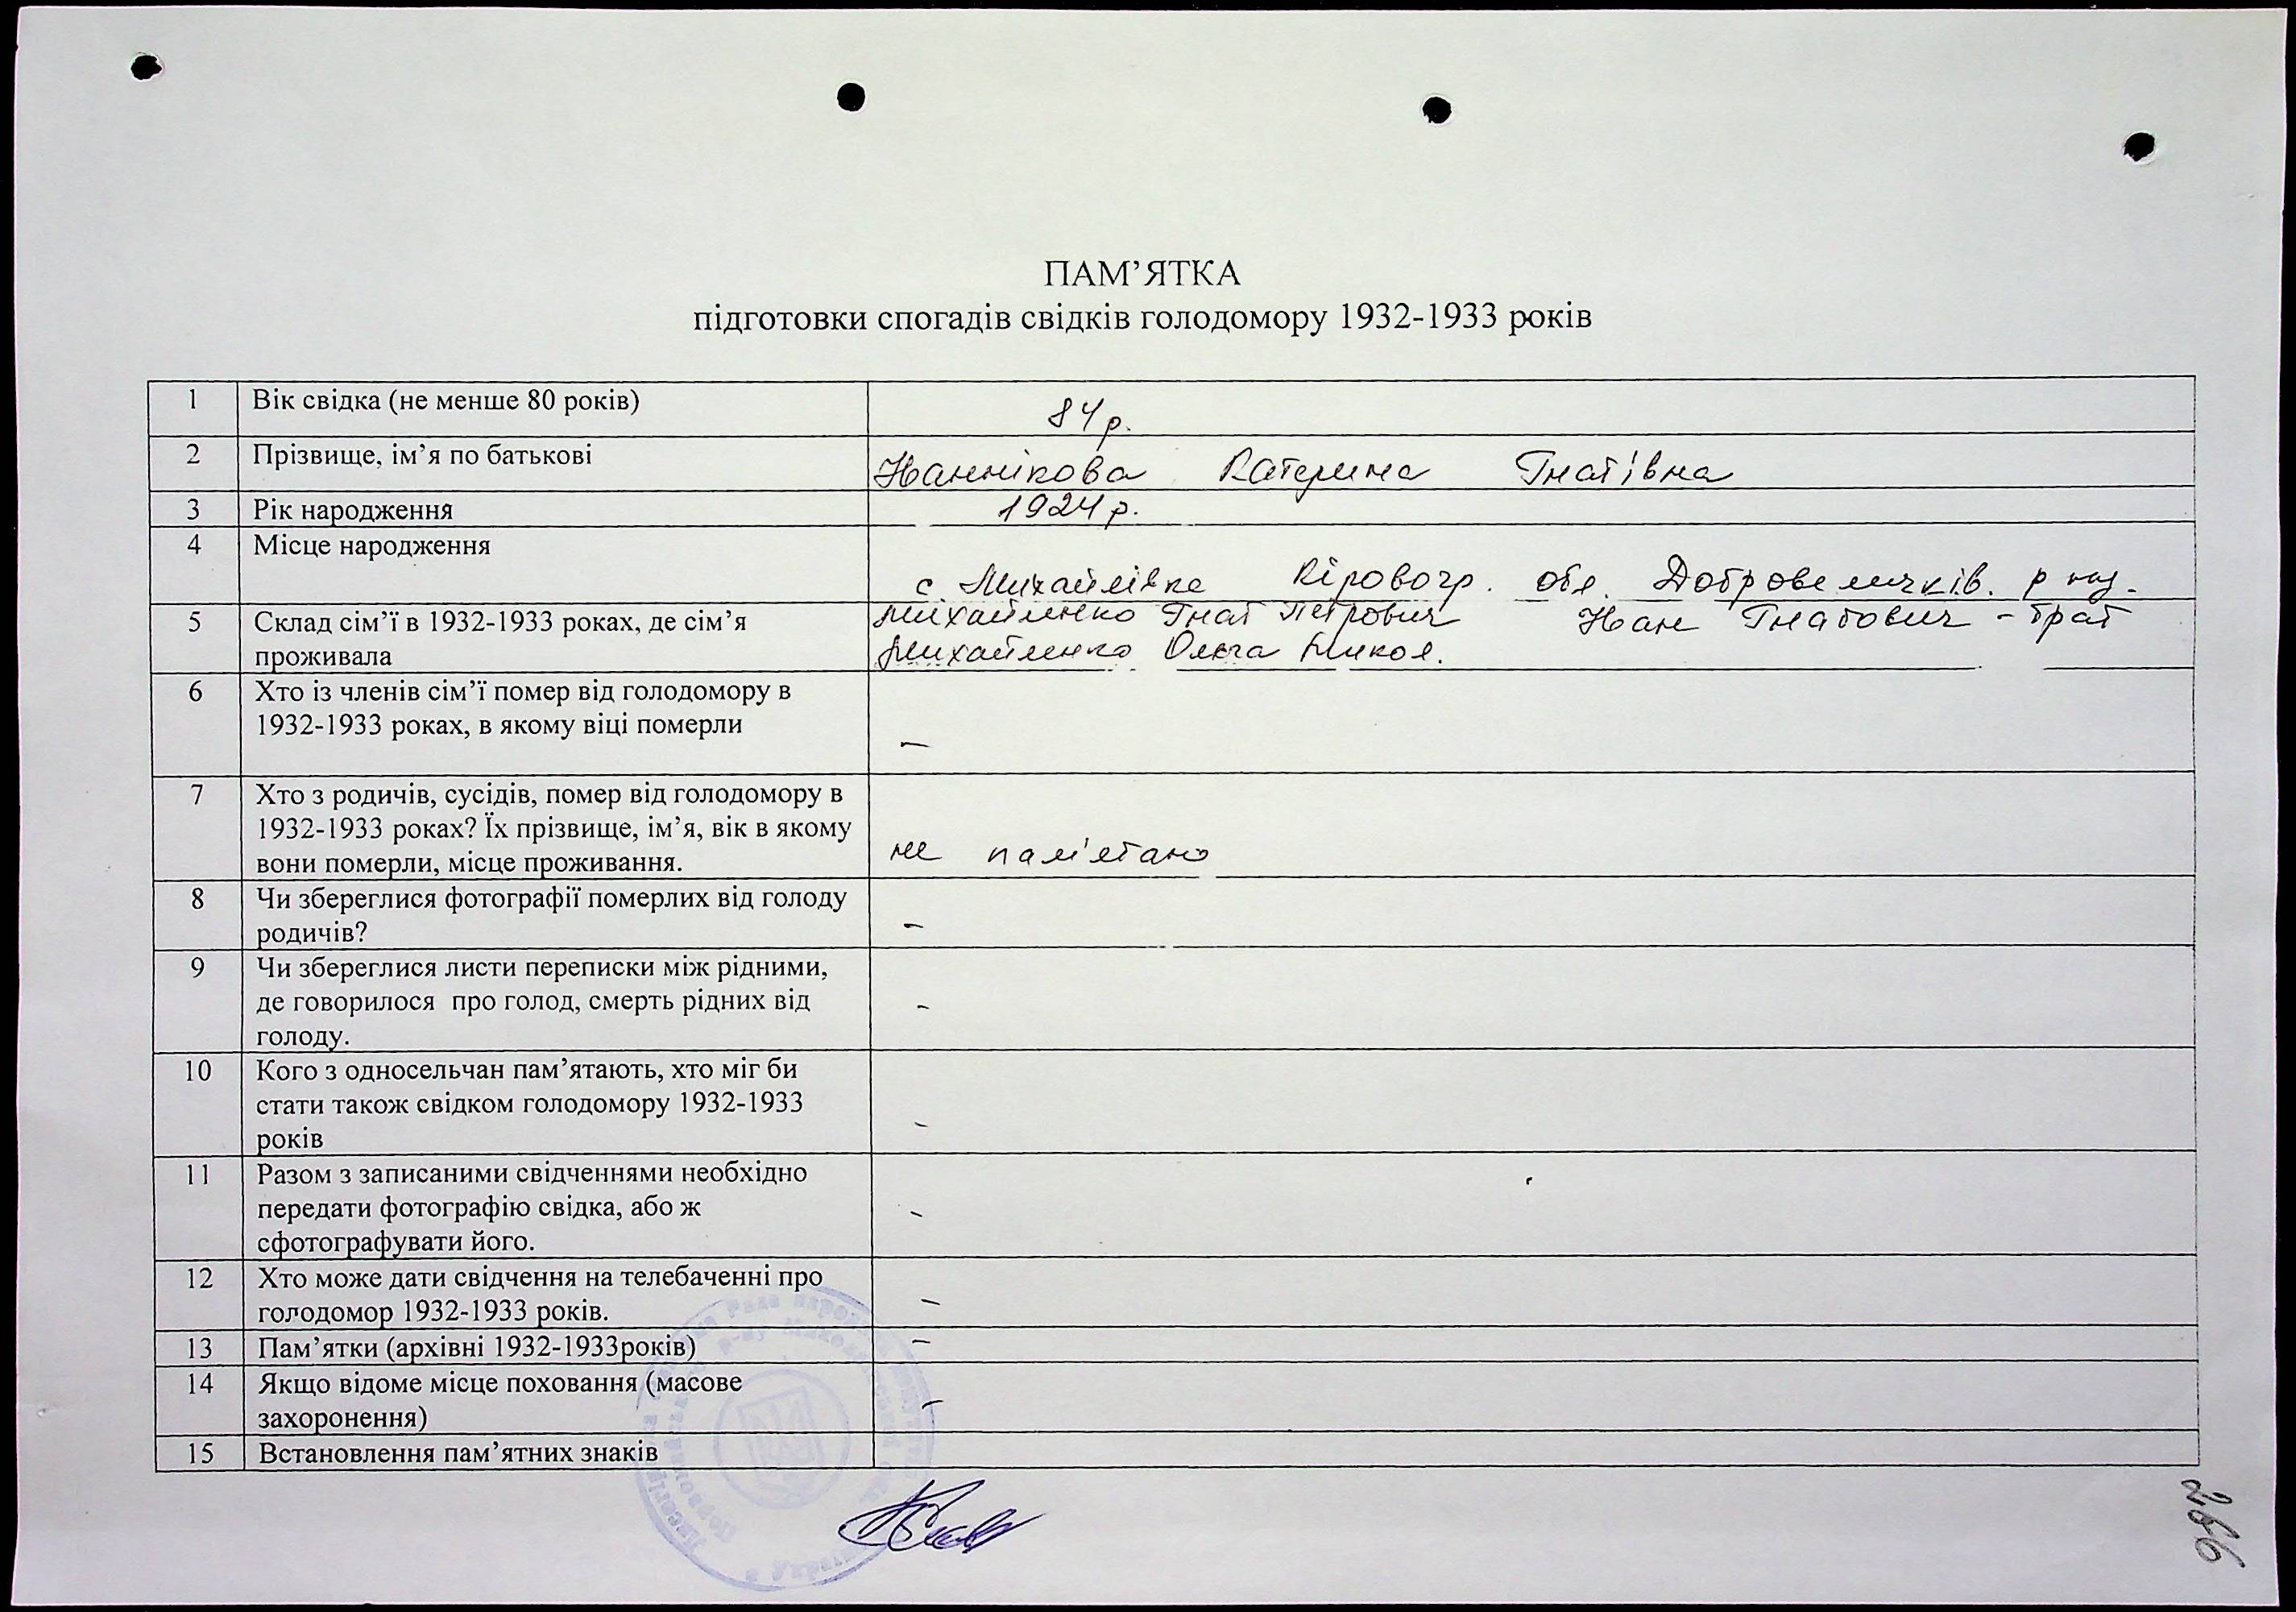 ПАМ’ЯТКА
підготовки спогадів свідків голодомору 1932-1933 років
1 Вік свідка (не менше 80 років) 84 р.
2 Прізвище, ім’я по батькові Катерина Гнатівна
3 Рік народження 1924 р.
4 Місце народження
с. Михайлівка Кіровогр. обл. Добровеличків. р-ну.
5 Склад сім’ї в 1932-1933 роках, де сім’я Михайленко Гнат Петрович Іван Гнатович - брат
проживала Михайленко Ольга Микол.
6 Хто із членів сім’ї помер від голодомору в
1932-1933 роках, в якому віці померли –
7 Хто з родичів, сусідів, помер від голодомору в
1932-1933 роках? Їх прізвище, ім’я, вік в якому
вони померли, місце проживання. не пам'ятаю
8 Чи збереглися фотографії померлих від голоду
родичів? –
9 Чи збереглися листи переписки між рідними,
де говорилося про голод, смерть рідних від –
голоду.
10 Кого з односельчан пам’ятають, хто міг би
стати також свідком голодомору 1932-1933 –
років
11 Разом з записаними свідченнями необхідно
передати фотографію свідка, або ж –
сфотографувати його.
12 Хто може дати свідчення на телебаченні про
голодомор 1932-1933 років. –
13 Пам’ятки (архівні 1932-1933років) –
14 Якщо відоме місце поховання (масове
захоронення) –
15 Встановлення пам’ятних знаків
266